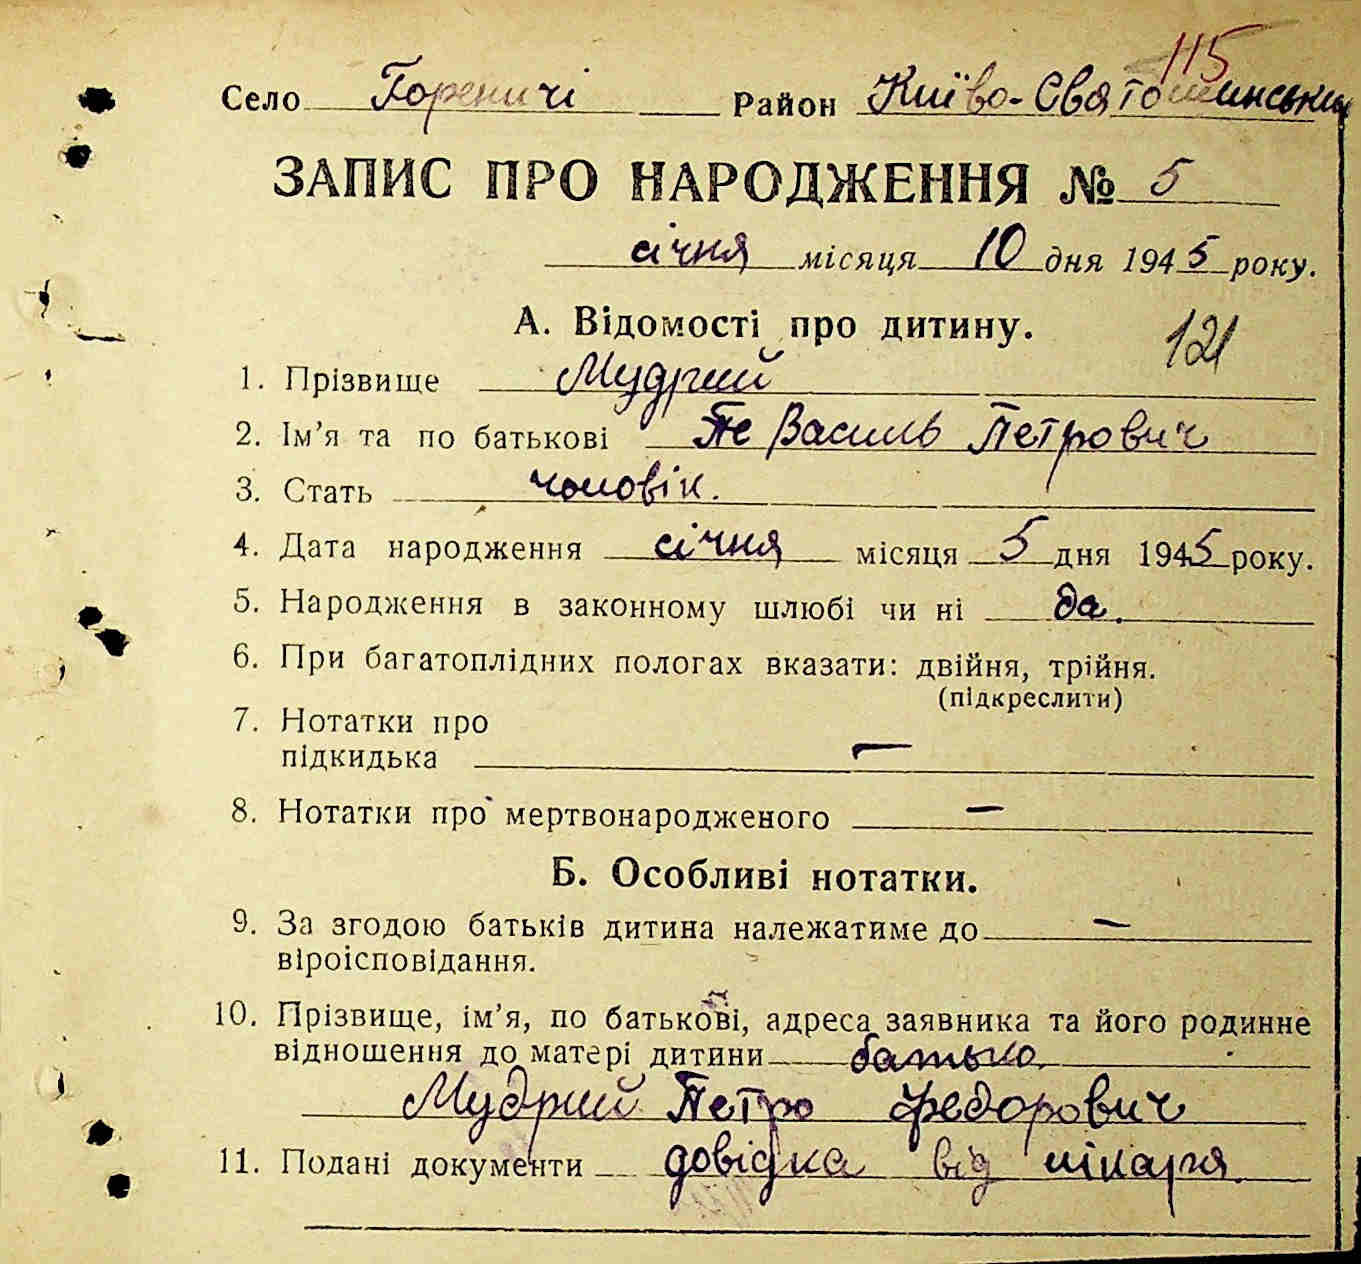 115
Село Гореничі Район Київо-Святошинський
ЗАПИС ПРО НАРОДЖЕННЯ № 5
січня місяця 10 дня 1945 року.
А. Відомості про дитину.
121
1. Прізвище Мудрий
2. Ім’я та по батькові Пе Василь Петрович
3. Стать чоловік.
4. Дата народження січня місяця 5 дня 1945 року.
5. Народження в законному шлюбі чи ні да.
6. При багатоплідних пологах вказати: двійня, трійня.
(підкреслити)
7. Нотатки про
підкидька —
8. Нотатки про мертвонародженого —
Б. Особливі нотатки.
9. За згодою батьків дитина належатиме до —
віроісповідання.
10. Прізвище, ім’я, по батькові, адреса заявника та його родинне
відношення до матері дитини батько.
Мудрий Петро Федорович
11. Подані документи довідка від лікаря.